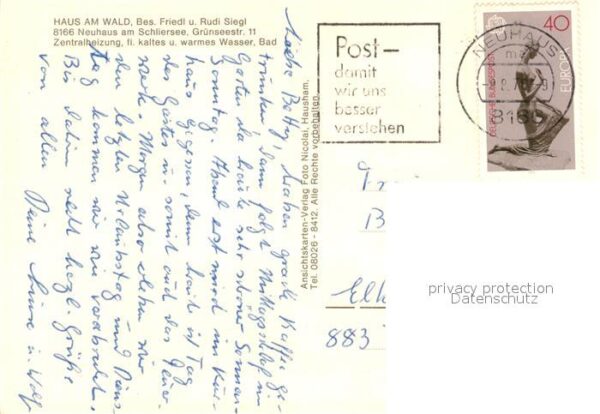 HAUS AM WALD, Bes. Friedl u. Rudi Siegl
8166 Neuhaus am Schliersee, Grünseestr. 11
Zentralheizung, fl. kaltes u. warmes Wasser, Bad
Post-
damit
wir uns
besser
verstehen
NEUHAUS
8166
40
EUROPA
DEUTSCHE BUNDESPOST
Ansichtskarten-Verlag Foto Nicolai, Hausham,
Tel. 08026 - 8412. Alle Rechte vorbehalten.
Liebe Betty, haben grade Kaffee ge-
trunken, dann folgt Mittagsschlaf im
Garten, da heute sehr schöner Sonnen-
Sonntag. Abend erst wird im Kur-
haus gegessen, denn heut ist Tag
des Gastes u. somit auch das
Morgen also
den letzten Urlaubstag und Diens-
tag kommen wir wie verabredet.
Bis dahin recht herzl. Grüße
von allen Deine u. Wolf
B
Elk
883
privacy protection
Datenschutz